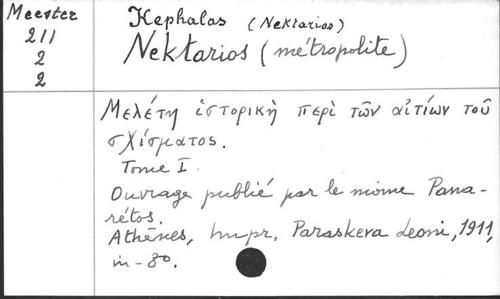 Meester
211
2
2
Kephalas (Nektarios)
Nektarios (métropolite)
Μελέτη ἱστορικὴ περὶ τῶν αἰτίων τοῦ
σχίσματος.
Tome I.
Ouvrage publié par le moine Pana-
rétos.
Athènes, Impr. Paraskeva Leoni, 1911,
in-8o.